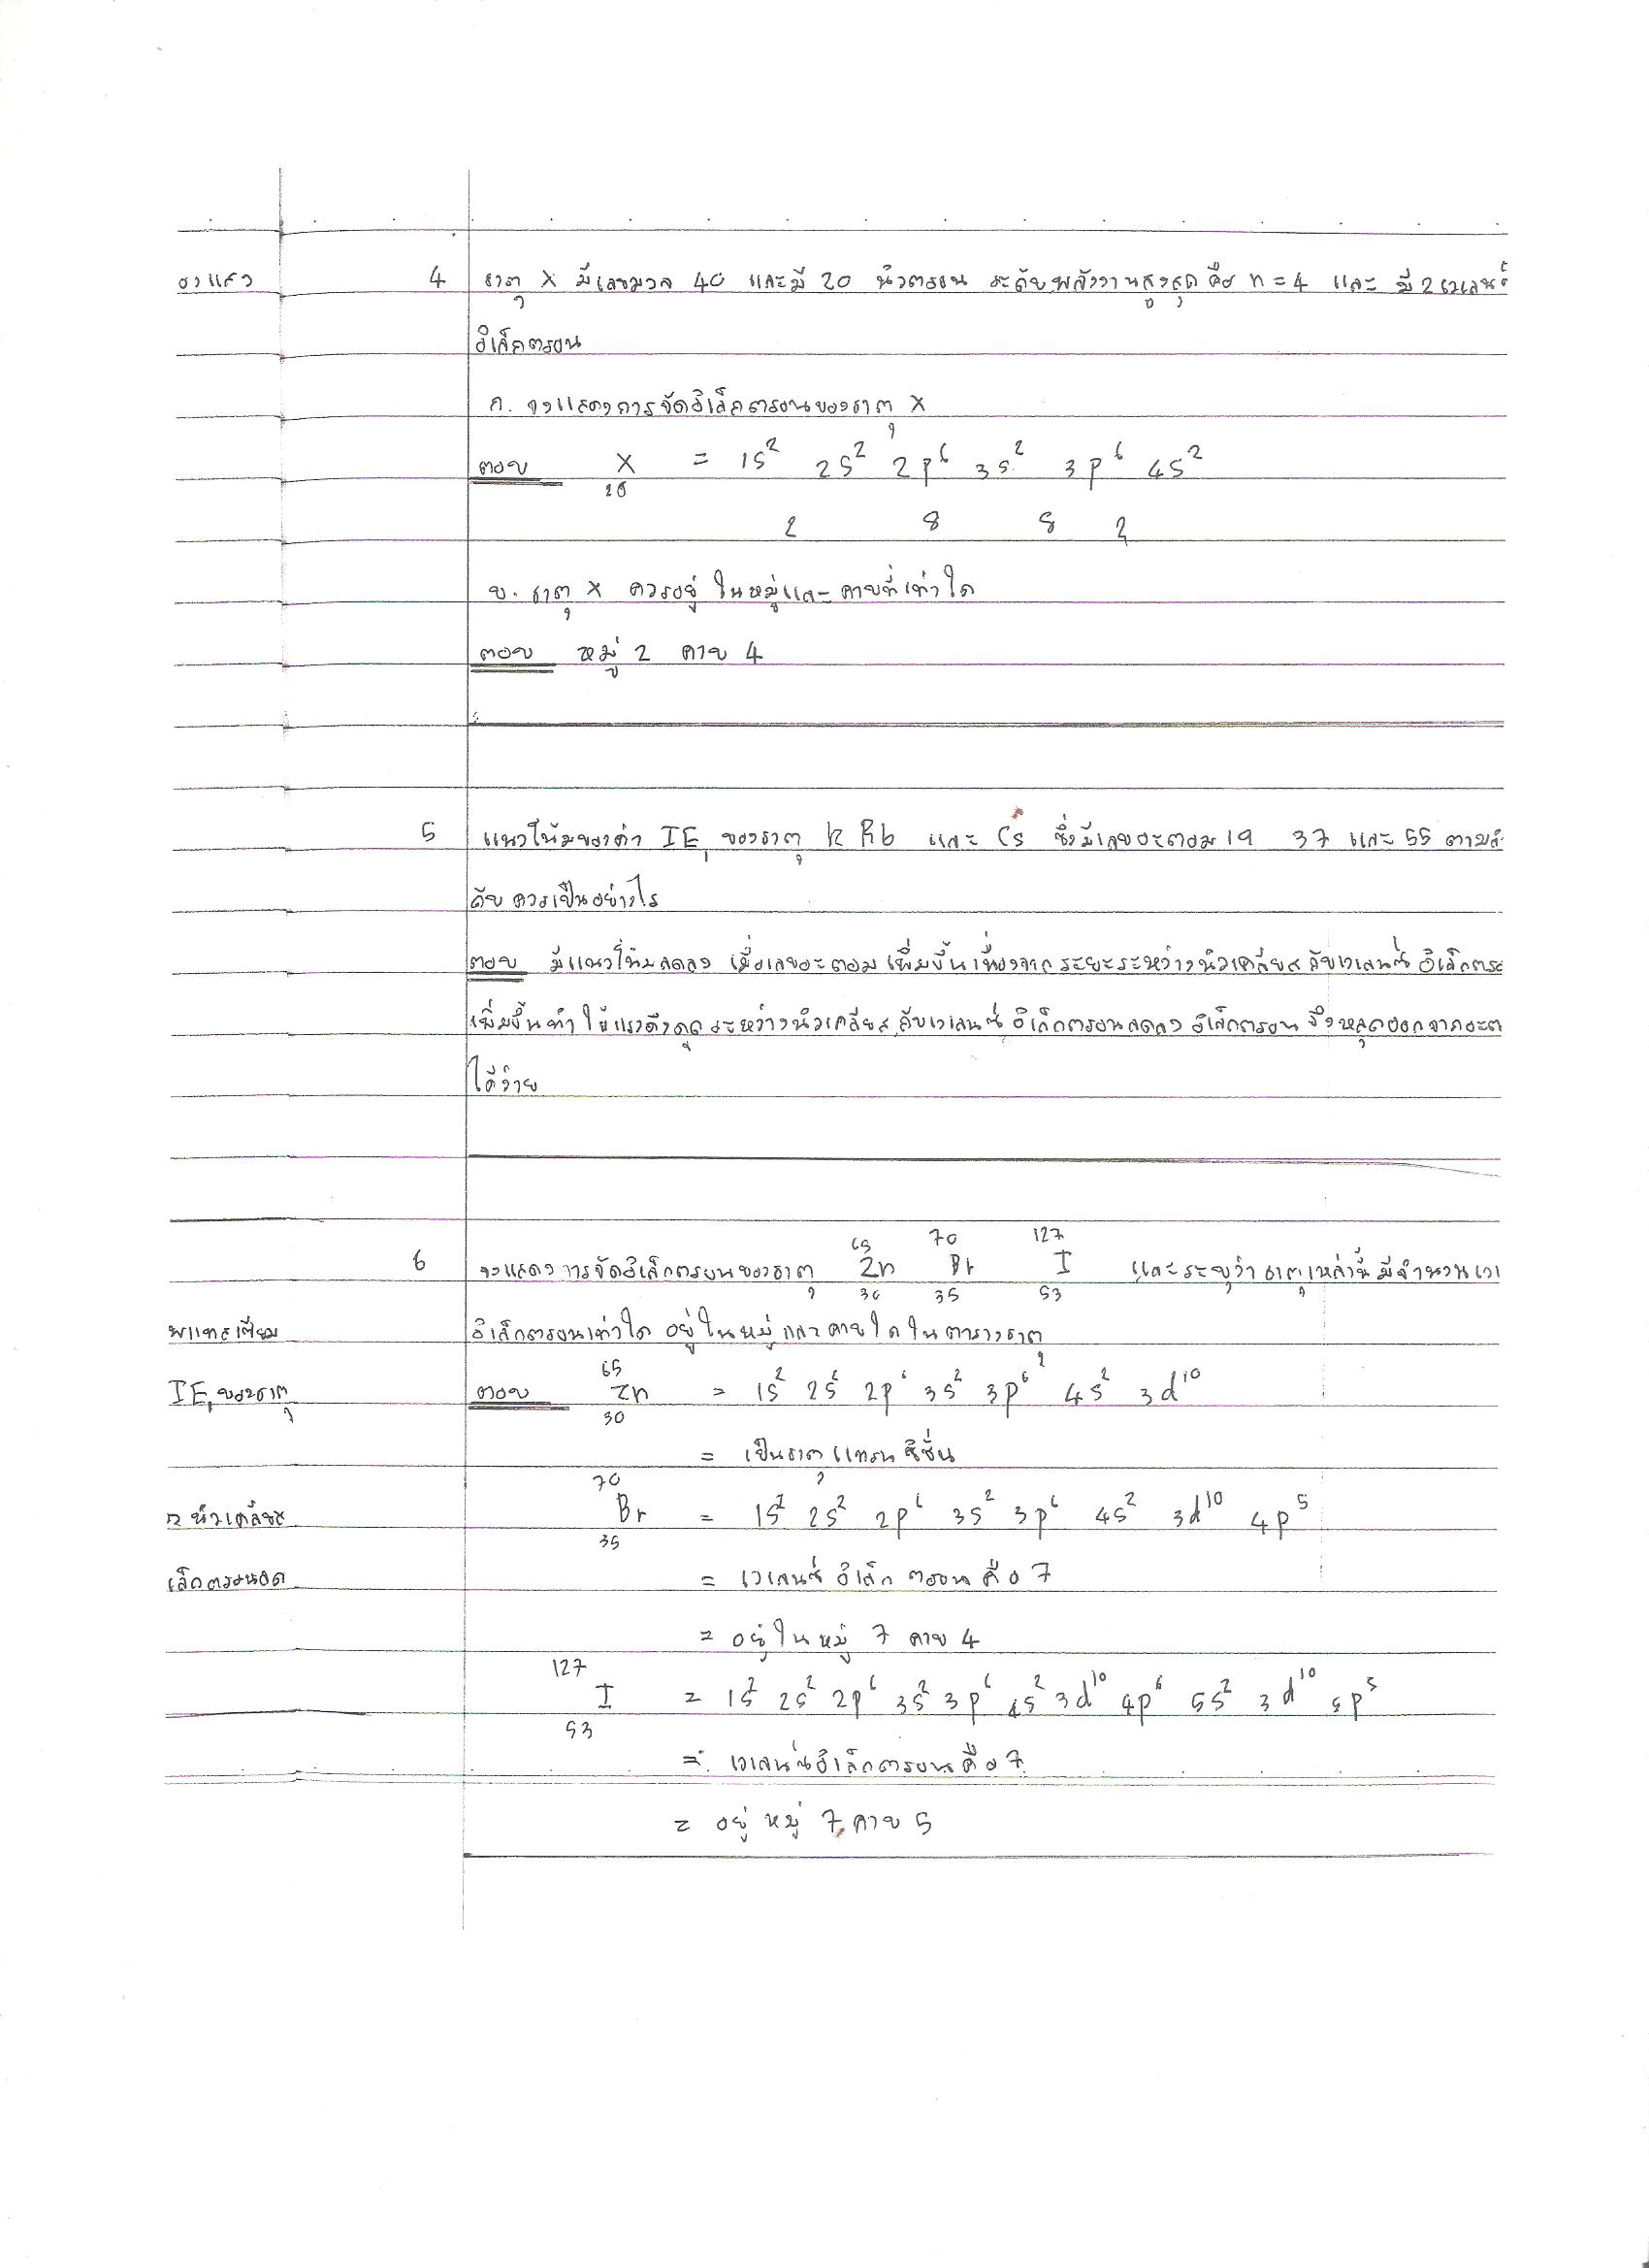 งแสง
4 ธาตุ X มีเลขมวล 40 และมี 20 นิวตรอน ระดับพลังงานสูงสุด คือ n = 4 และ มี 2 เวเลนซ์
อิเล็กตรอน
ก. จงแสดงการจัดอิเล็กตรอนของธาตุ X
ตอบ X = 1s² 2s² 2p⁶ 3s² 3p⁶ 4s²
20
2 8 8 2
ข. ธาตุ X ควรอยู่ในหมู่และคาบที่เท่าใด
ตอบ หมู่ 2 คาบ 4
5 แนวโน้มของค่า IE₁ ของธาตุ K Rb และ Cs ซึ่งมีเลขอะตอม 19 37 และ 55 ตามลำ
ดับ ควรเป็นอย่างไร
ตอบ มีแนวโน้มลดลง เมื่อเลขอะตอม เพิ่มขึ้นเนื่องจาก ระยะระหว่างนิวเคลียส กับเวเลนซ์ อิเล็กตร
เพิ่มขึ้นทำให้แรงดึงดูดระหว่างนิวเคลียส กับเวเลนซ์ อิเล็กตรอนลดลง อิเล็กตรอน จึงหลุดออกจากอะต
ได้ง่าย
65 70 127
6 จงแสดงการจัดอิเล็กตรอนของธาตุ Zn Br I และระบุว่า ธาตุเหล่านี้ มีจำนวนเว
30 35 53
อิเล็กตรอนเท่าใด อยู่ในหมู่และคาบใดในตารางธาตุ
65
IE₁ ของธาตุ
ตอบ Zn = 1s² 2s² 2p⁶ 3s² 3p⁶ 4s² 3d¹⁰
30
= เป็นธาตุแทรนซิชั่น
70
Br = 1s² 2s² 2p⁶ 3s² 3p⁶ 4s² 3d¹⁰ 4p⁵
35
นิวเคลียส
เล็กตรอนอด
= เวเลนซ์ อิเล็กตรอนคือ 7
= อยู่ในหมู่ 7 คาบ 4
127
I = 1s² 2s² 2p⁶ 3s² 3p⁶ 4s² 3d¹⁰ 4p⁶ 5s² 3d¹⁰ 5p⁵
53
= เวเลนซ์อิเล็กตรอนคือ 7
= อยู่ หมู่ 7 คาบ 5